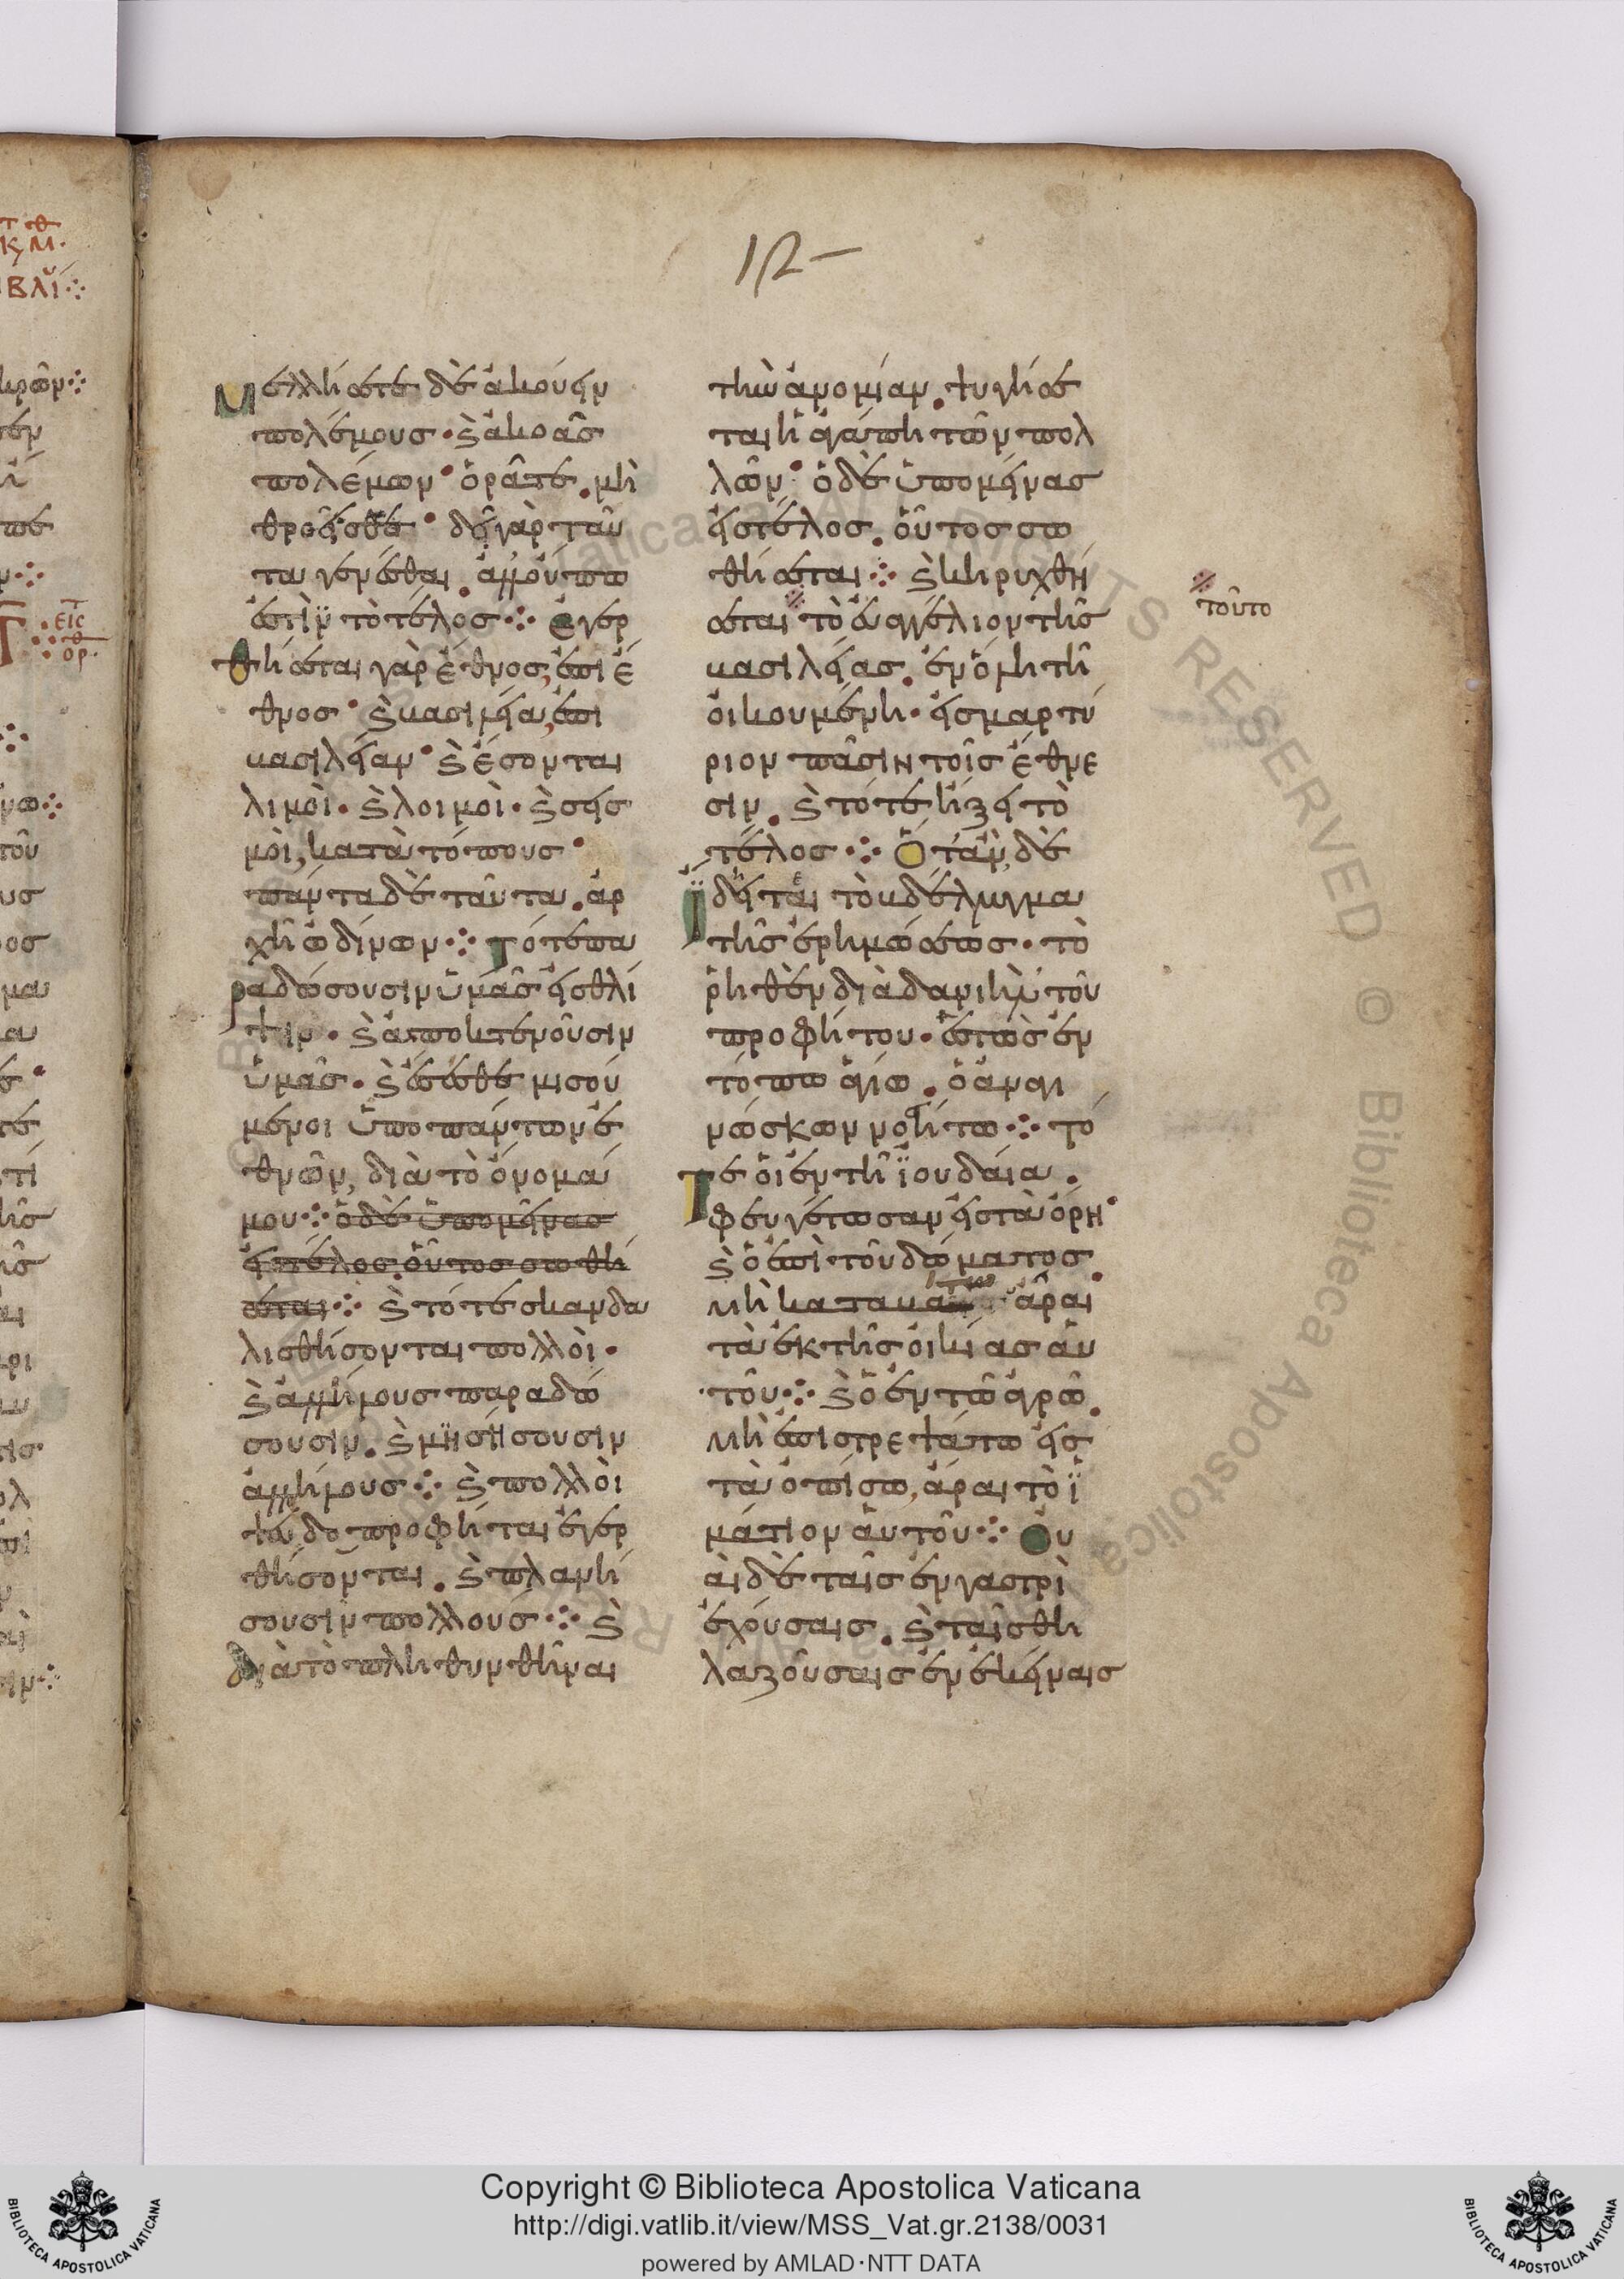 12-
μελλήσετε δὲ ἀκούειν
πολέμους· ϗ ἀκοὰς
πολέμων· ὁρᾶτε. μὴ
θροεῖσθε· δεῖ γὰρ ταῦ
τα γενέσθαι. ἀλλ' οὔπω
ἐστὶν τὸ τέλος ⁘ ἐγερ
θήσεται γὰρ ἔθνος, ἐπὶ ἔ
θνος· ϗ βασιλεία, ἐπὶ
βασιλείαν· ϗ ἔσονται
λιμοὶ· ϗ λοιμοὶ· ϗ σεισ
μοὶ, κατὰ τόπους·
πάντα δὲ ταῦτα. ἀρ
χὴ ὠδίνων ⁘ τότε πα
ραδώσουσιν ὑμᾶς εἰς θλί
ψιν· ϗ ἀποκτενοῦσιν
ὑμᾶς· ϗ ἔσεσθε μισού
μενοι ὑπο πάντων ἐ
θνῶν, διὰ τὸ ὄνομά
μου ⁘ ὁ δὲ ὑπομείνας
εἰς τέλος. οὗτος σωθή
σεται ⁘ ϗ τότε σκανδα
λισθήσονται πολλοὶ·
ϗ ἀλλήλους παραδώ
σουσιν. ϗ μισήσουσιν
ἀλλήλους ⁘ ϗ πολλοὶ
ψευδοπροφῆται ἐγερ
θήσονται. ϗ πλανή
σουσιν πολλούς ⁘ ϗ
διὰ τὸ πληθυνθῆναι
τὴν ἀνομίαν. ψυγήσε
ται ἡ ἀγάπη τῶν πολ
λῶν· ὁ δὲ ὑπομείνας
εἰς τέλος. οὗτος σω
θήσεται ⁘ ϗ κηρυχθή
σεται τὸ εὐαγγέλιον τῆς
τοῦτο
βασιλείας. ἐν ὅλη τῆ
οἰκουμένη· εἰς μαρτύ
ριον πᾶσιν τοῖς ἔθνε
σιν. ϗ τότε ἥξει τὸ
τέλος ⁘ Ὅταν, δὲ
ἴδειται τὸ βδέλυγμα
τῆς ἐρημώσεως· τὸ
ῥηθὲν διὰ δανιὴλ τοῦ
προφήτου· ἑστὼς ἐν
τόπω ἁγίω. ὁ ἀναγι
νώσκων νοείτω ⁘ τό
τε οἱ ἐν τῆ ἰουδαία.
φευγέτωσαν εἰς τὰ ὄρη·
ϗ ὁ ἐπὶ τοῦ δώματος.
μὴ καταβα ἆραι
τὰ ἐκ τῆς οἰκίας αὐ
τοῦ ⁘ ϗ ὁ ἐν τῶ ἀγρῶ.
μὴ ἐπιστρεψάτω εἰς
τὰ ὀπίσω, ἆραι τὸ ἱ
μάτιον αὐτοῦ ⁘ Οὐ
αὶ δὲ ταῖς ἐν γαστρὶ
ἐχούσαις. ϗ ταῖς θη
λαζούσαις ἐν ἐκείναις
Copyright © Biblioteca Apostolica Vaticana
http://digi.vatlib.it/view/MSS_Vat.gr.2138/0031
powered by AMLAD·NTT DATA
BIBLIOTECA APOSTOLICA VATICANA
BIBLIOTECA APOSTOLICA VATICANA